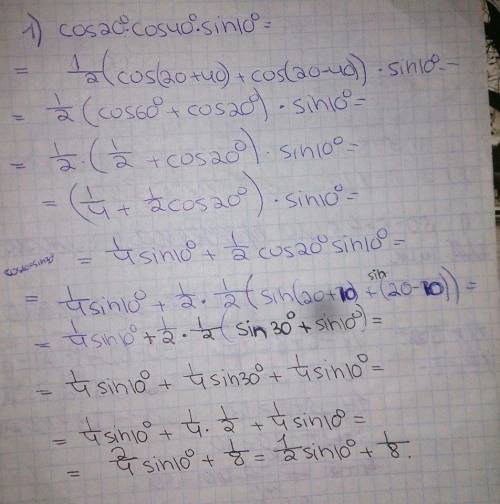 1) cos20°·cos40°·sin10°=
= 1/2(cos(20+40)+cos(20-40))·sin10°=
= 1/2(cos60°+cos20°)·sin10°=
= 1/2·(1/2+cos20°)·sin10°=
= (1/4+1/2cos20°)·sin10°=
= 1/4sin10°+1/2cos20°sin10°=
= 1/4sin10°+1/2·1/2(sin(20+10)+sin(20-10))=
= 1/4sin10°+1/2·1/2(sin30°+sin10°)=
= 1/4sin10°+1/4sin30°+1/4sin10°=
= 1/4sin10°+1/4·1/2+1/4sin10°=
= 2/4sin10°+1/8=1/2sin10°+1/8.